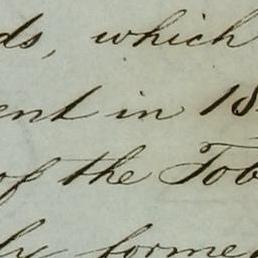 ds, which
ent in 18
of the Tob
ly forme